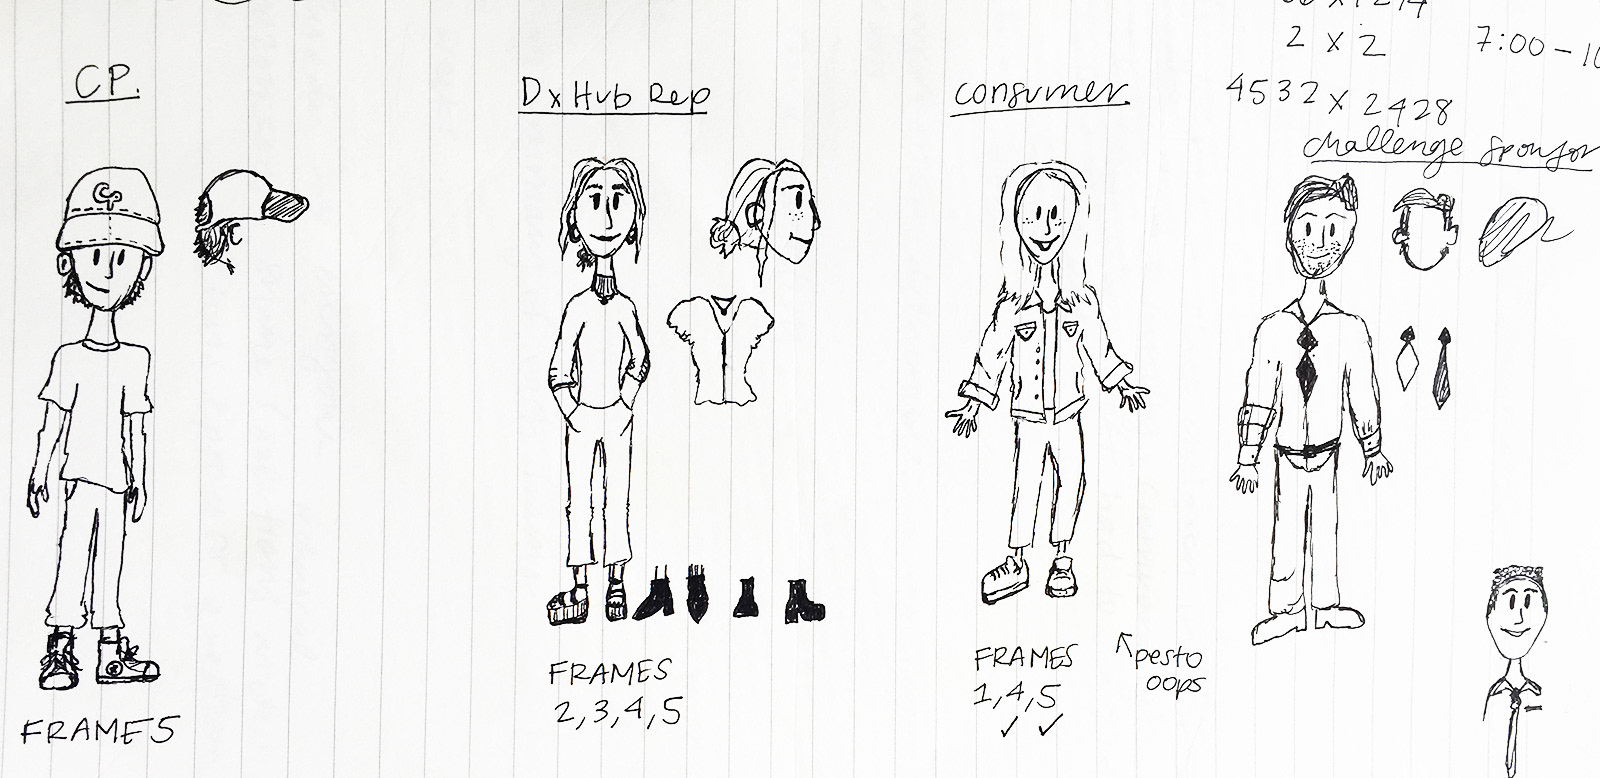 2 x 2
7:00 – 10
4532 x 2428
CP.
Dx Hub Rep
consumer
challenge sponsor
CP
FRAMES
2,3,4,5
FRAMES
1,4,5
✓ ✓
pesto
oops
FRAME 5